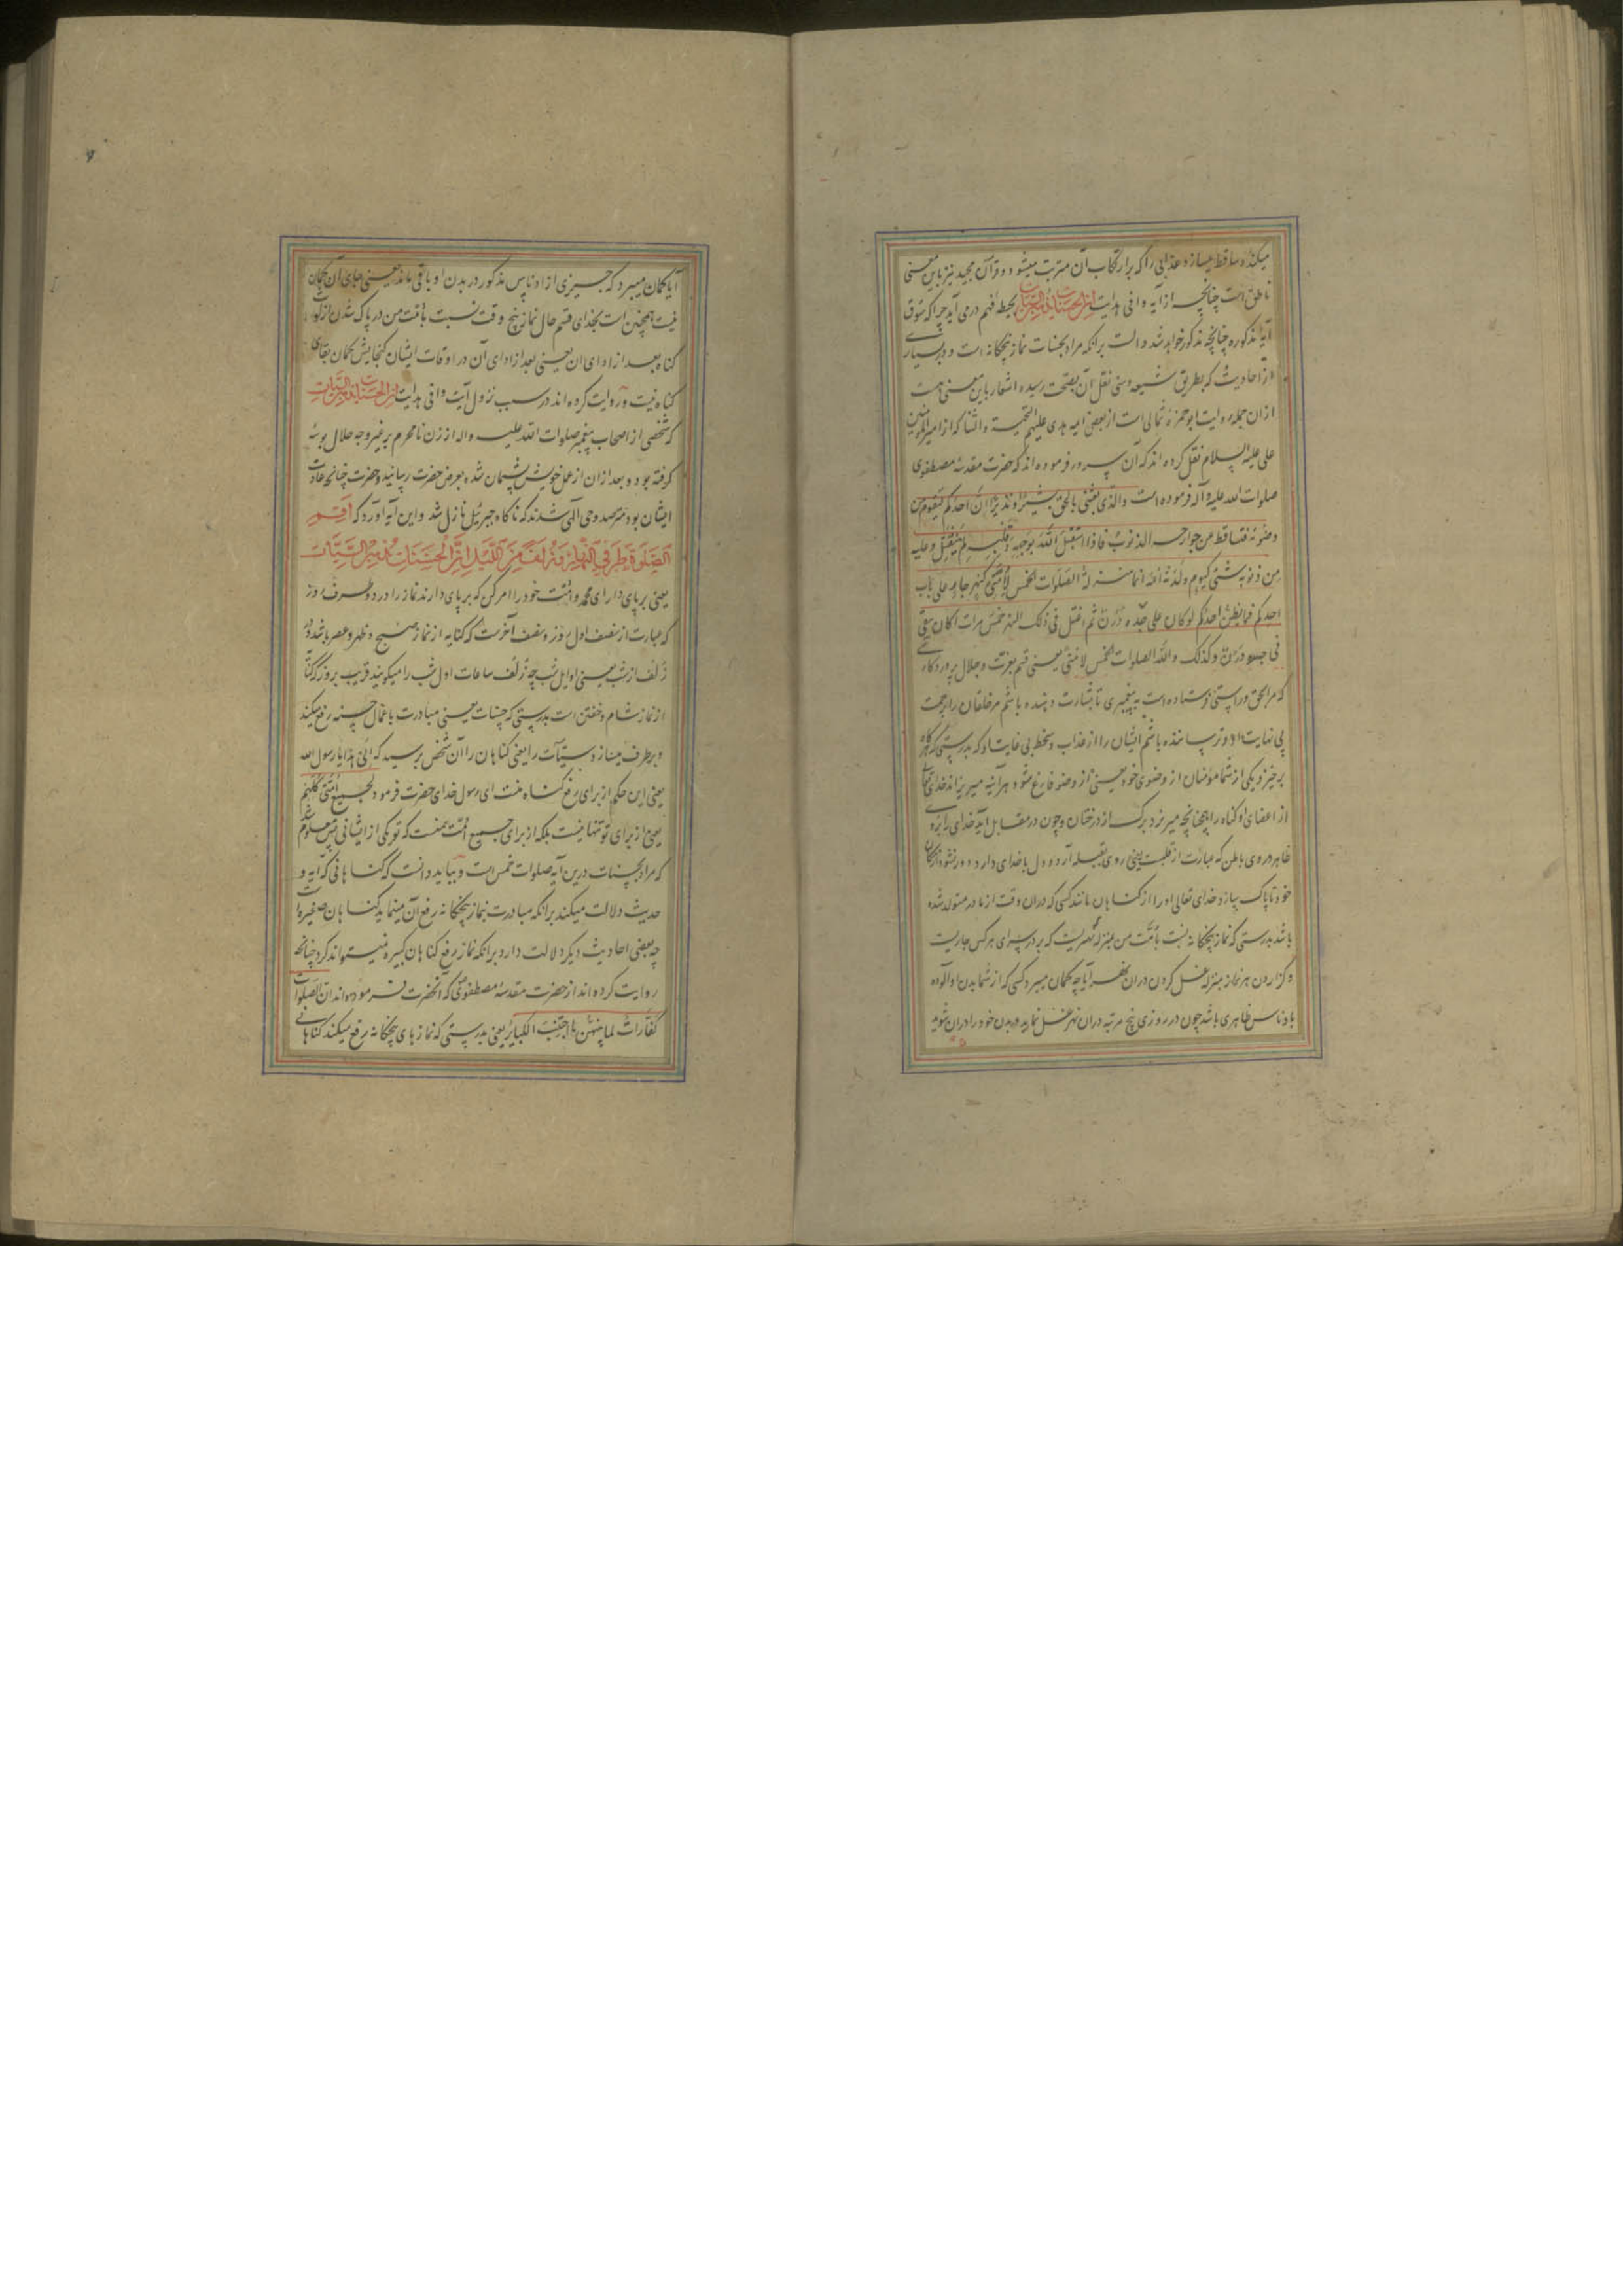 میکند و ساقط میسازد عذابی را که بر ارتکاب آن مترتب میشود و قرآن مجید نیز باین معنی
ناطق است چنانچه از آیه وافی هدایت ان الحسنات یذهبن السیئات بحیطه فهم درمی آید چرا که سوق
آیه مذکوره چنانچه مذکور خواهد شد دالست برانکه مراد بحسنات نماز پنجگانه است و در بسیاری
از احادیث که بطریق شیعه و سنی نقل آن بصحت رسیده اشعار باین معنی هست
ازان جمله روایت ابو حمزه ثمالی است از بعضی ایمه هدی علیهم التحیة و الثنا که از امیر المؤمنین
علی علیه السلام نقل کرده اند که آن سرور فرموده اند که حضرت مقدسه مصطفوی
صلوات الله علیه و آله فرموده است والذی بعثنی بالحق بشیرا و نذیرا ان احدکم لیقوم من
وضوئه فتساقط عن جوارحه الذنوب فاذا استقبل الله بوجهه و قلبه لم ینفتل و علیه
من ذنوبه شئ کیوم ولدته امه انما منزلة الصلوات الخمس لامتی کنهر جار علی باب
احدکم فما یظن احدکم لو کان علی جسده درن ثم اغتسل فی ذلک النهر خمس مرات اکان یبقی
فی جسده درن و کذلک والله الصلوات الخمس لامتی یعنی قسم بعزت و جلال پروردگاری
که مرا بحق و راستی فرستاده است به پیغمبری تا بشارت دهنده باشم مر خلقان را برحمت
بی نهایت او و ترساننده باشم ایشان را از عذاب و سخط بی غایت او که بدرستی که هرگاه
برخیزد یکی از شما مؤمنان از وضوی خود یعنی از وضو فارغ شود هرآینه میریزاند خدای تعالی
از اعضای او گناه را همچنانچه میریزد برگ از درختان و چون در مقابل آید خدای را بروی
ظاهر و روی باطن که عبارت از قلبست یعنی روی بقبله آرد و دل با خدای دارد و دور نشود از مکان
خود تا پاک سازد خدای تعالی او را از گناهان مانند کسی که دران وقت از مادر متولد شده
باشد بدرستی که نماز پنجگانه نسبت بامت من بمنزله نهریست که بر در سرای هر کس جاریست
و گزاردن هر نماز بمنزله غسل کردن دران نهر آیا چه گمان میبرد کسی که از شما بدن او آلوده
باوناس ظاهری باشد چون در روزی پنج مرتبه دران نهر غسل نماید و بدن خود را دران شوید
آیا گمان میبرد که چیزی از اوناس مذکور در بدن او باقی ماند یعنی جای آن گمان
نیست همچنین است بخدای قسم حال نماز پنج وقت نسبت بامت من در پاک شدن از لوث
گناه بعد از ادای ان یعنی بعد از ادای آن در اوقات ایشان گنجایش گمان بقای
گناه نیست و روایت کرده اند در سبب نزول آیت وافی هدایت ان الحسنات یذهبن السیئات
که شخصی از اصحاب پیغمبر صلوات الله علیه و اله از زن نامحرم بر غیر وجه حلال بوسه
گرفته بود و بعد ازان از عمل خویش پشیمان شده بعرض حضرت رسانید و حضرت چنانچه عادت
ایشان بود مترصد وحی آلهی شدند که ناگاه جبرئیل نازل شد و این آیه آورد که اقم
الصلوة طرفی النهار و زلفا من اللیل ان الحسنات یذهبن السیئات
یعنی برپای دار ای محمد و امت خود را امر کن که برپای دارند نماز را در دو طرف روز
که عبارت از نصف اول روز و نصف آخرست که کنایه از نماز صبح و ظهر و عصر باشد و در
زلف از شب یعنی اوایل شب چه زلف ساعات اول شب را میگویند قریب بروز کنایه
از نماز شام و خفتن است بدرستی که حسنات یعنی مبادرت باعمال حسنه رفع میکند
و برطرف میسازد سیئات را یعنی گناهان را آن شخص پرسید که الی هذا یا رسول الله
یعنی این حکم از برای رفع گناه منست ای رسول خدای حضرت فرمود لجمیع امتی کلهم
یعنی از برای تو تنها نیست بلکه از برای جمیع امت منست که تو یکی از ایشانی پس معلوم شد
که مراد بحسنات درین آیه صلوات خمس است و بباید دانست که گناهانی که آیه و
حدیث دلالت میکند برانکه مبادرت بنماز پنجگانه رفع آن مینماید گناهان صغیره است
چه بعضی احادیث دیگر دلالت دارد برانکه نماز رفع گناهان کبیره نمیتواند کرد چنانچه
روایت کرده اند از حضرت مقدسه مصطفوی که آنحضرت فرموده اند ان الصلوات
کفارات لما بینهن ما اجتنب الکبایر یعنی بدرستی که نماز های پنجگانه رفع میکند گناهانی